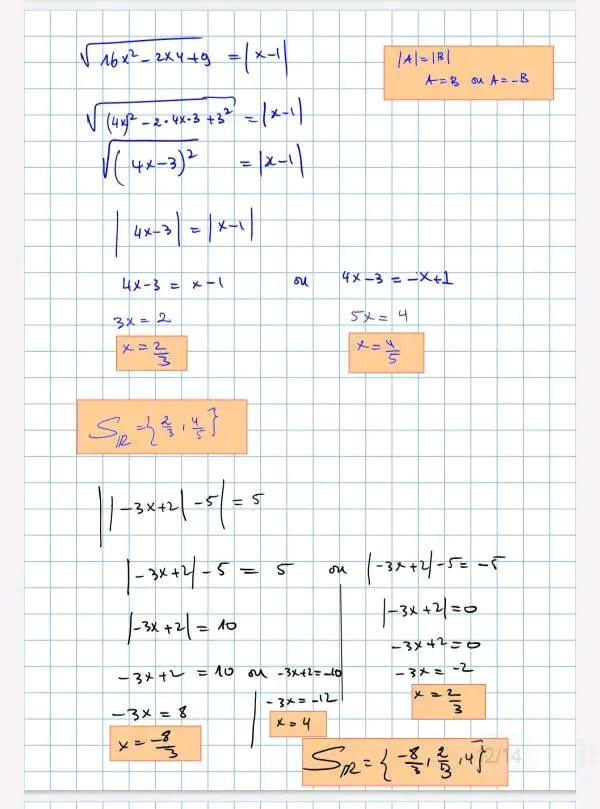 √(16x² - 2x4 + 9) = |x-1|
|A|=|B|
A=B ou A=-B
√((4x)² - 2·4x·3 + 3²) = |x-1|
√((4x-3)²) = |x-1|
|4x-3| = |x-1|
4x-3 = x-1 ou 4x-3 = -x+1
3x = 2 5x = 4
x = 2/3 x = 4/5
S_ℝ = {2/3, 4/5}
||-3x+2| -5| = 5
|-3x+2| -5 = 5 ou |-3x+2| -5 = -5
|-3x+2| = 10 |-3x+2| = 0
-3x+2 = 10 ou -3x+2 = -10 -3x+2 = 0
-3x = 8 -3x = -12 -3x = -2
x = -8/3 x = 4 x = 2/3
S_ℝ = {-8/3, 2/3, 4}
12/14